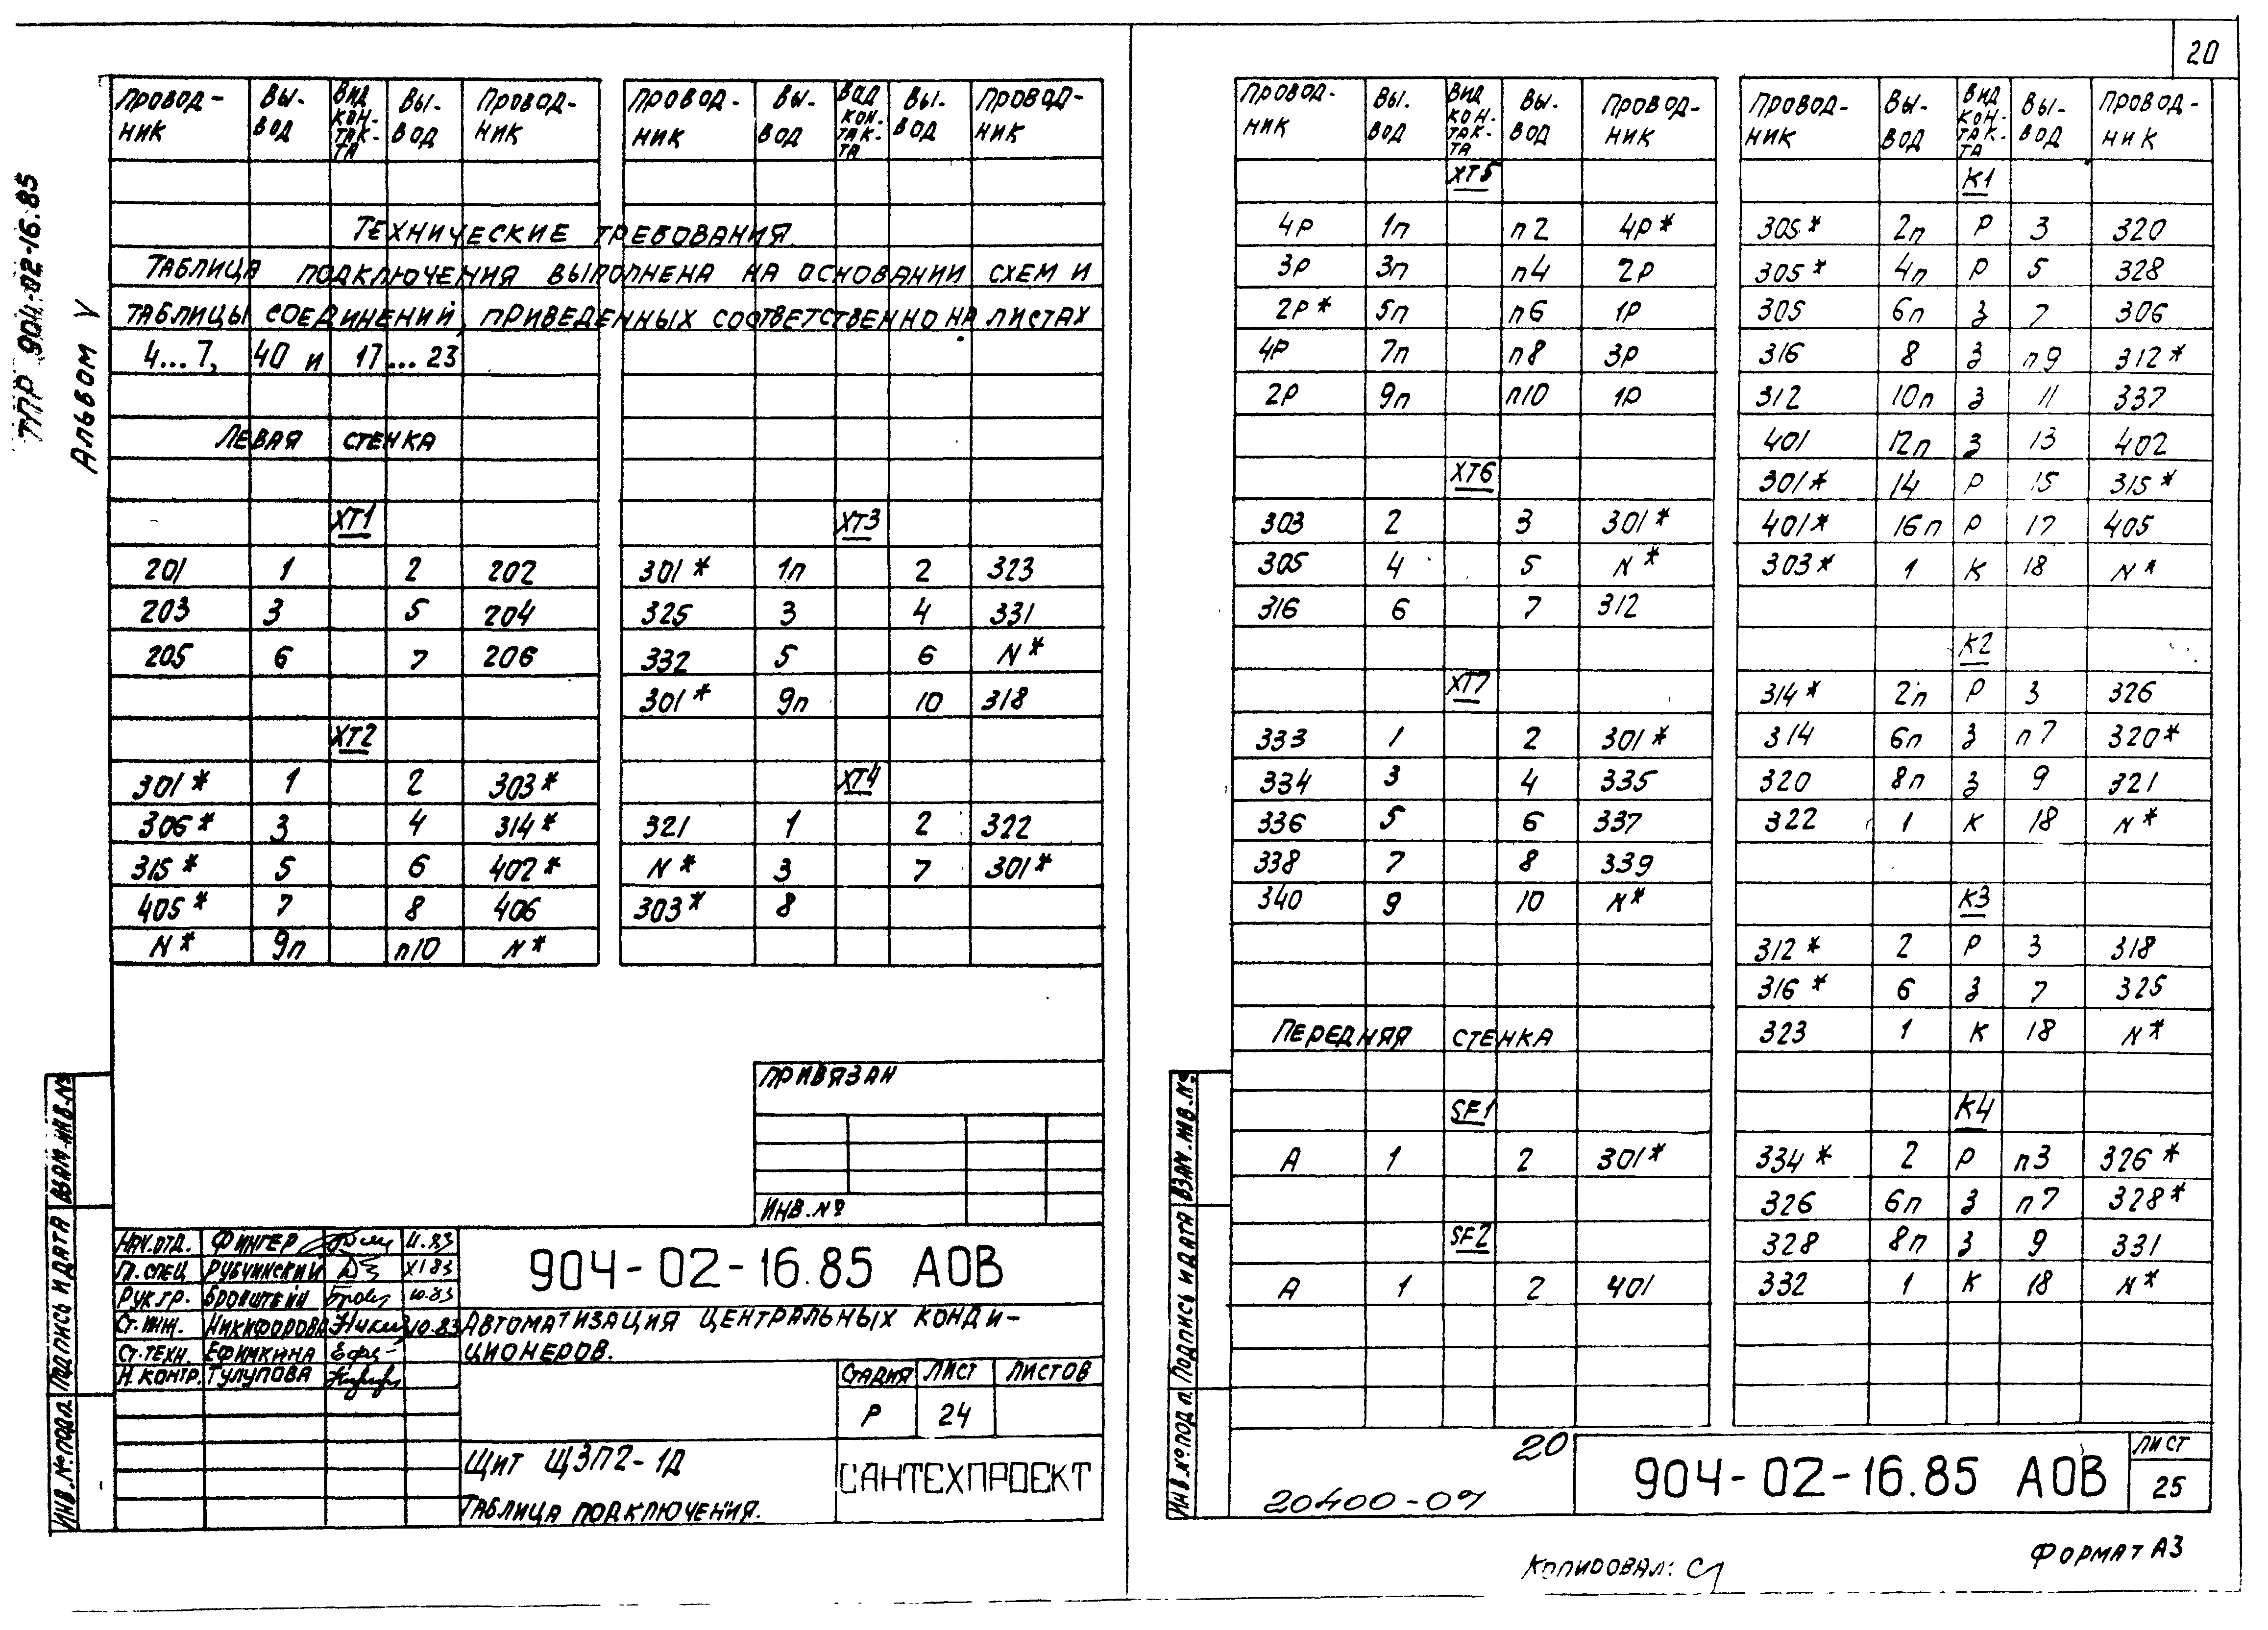 20
ТПР 904-02-16.85
Альбом V
Провод-ник Вы-вод Вид кон-так-та Вы-вод Провод-ник
Технические требования.
Таблица подключения выполнена на основании схем и
таблицы соединений, приведенных соответственно на листах
4...7, 40 и 17...23
Левая стенка
XT1
201 1 2 202
203 3 5 204
205 6 7 206
XT2
301* 1 2 303*
306* 3 4 314*
315* 5 6 402*
405* 7 8 406
N* 9п п10 N*
Провод-ник Вы-вод Вид кон-так-та Вы-вод Провод-ник
XT3
301* 1п 2 323
325 3 4 331
332 5 6 N*
301* 9п 10 318
XT4
321 1 2 322
N* 3 7 301*
303* 8
Привязан
Инв.№
Нач.отд. Фингер 11.83
Гл.спец Рубчинский XI 83
Рук.гр. Бронштейн 10.83
Ст.инж. Никифорова 10.83
Ст.техн. Ефимкина
Н.контр. Тулупова
904-02-16.85 АОВ
Автоматизация центральных конди-
ционеров.
Стадия Лист Листов
Р 24
Щит ЩЗП2-1Д
Таблица подключения.
САНТЕХПРОЕКТ
Инв.№подл. Подпись и дата Взам.инв.№
Провод-ник Вы-вод Вид кон-так-та Вы-вод Провод-ник
XT5
4Р 1п п2 4Р*
3Р 3п п4 2Р
2Р* 5п п6 1Р
4Р 7п п8 3Р
2Р 9п п10 1Р
XT6
303 2 3 301*
305 4 5 N*
316 6 7 312
XT7
333 1 2 301*
334 3 4 335
336 5 6 337
338 7 8 339
340 9 10 N*
Передняя стенка
SF1
А 1 2 301*
SF2
А 1 2 401
Провод-ник Вы-вод Вид кон-так-та Вы-вод Провод-ник
К1
305* 2п Р 3 320
305* 4п Р 5 328
305 6п З 7 306
316 8 З п9 312*
312 10п З 11 337
401 12п З 13 402
301* 14 Р 15 315*
401* 16п Р 17 405
303* 1 К 18 N*
К2
314* 2п Р 3 326
314 6п З п7 320*
320 8п З 9 321
322 1 К 18 N*
К3
312* 2 Р 3 318
316* 6 З 7 325
323 1 К 18 N*
К4
334* 2 Р п3 326*
326 6п З п7 328*
328 8п З 9 331
332 1 К 18 N*
Инв.№подл. Подпись и дата Взам.инв.№
20
20400-07
904-02-16.85 АОВ
Лист
25
Копировал:
Формат А3